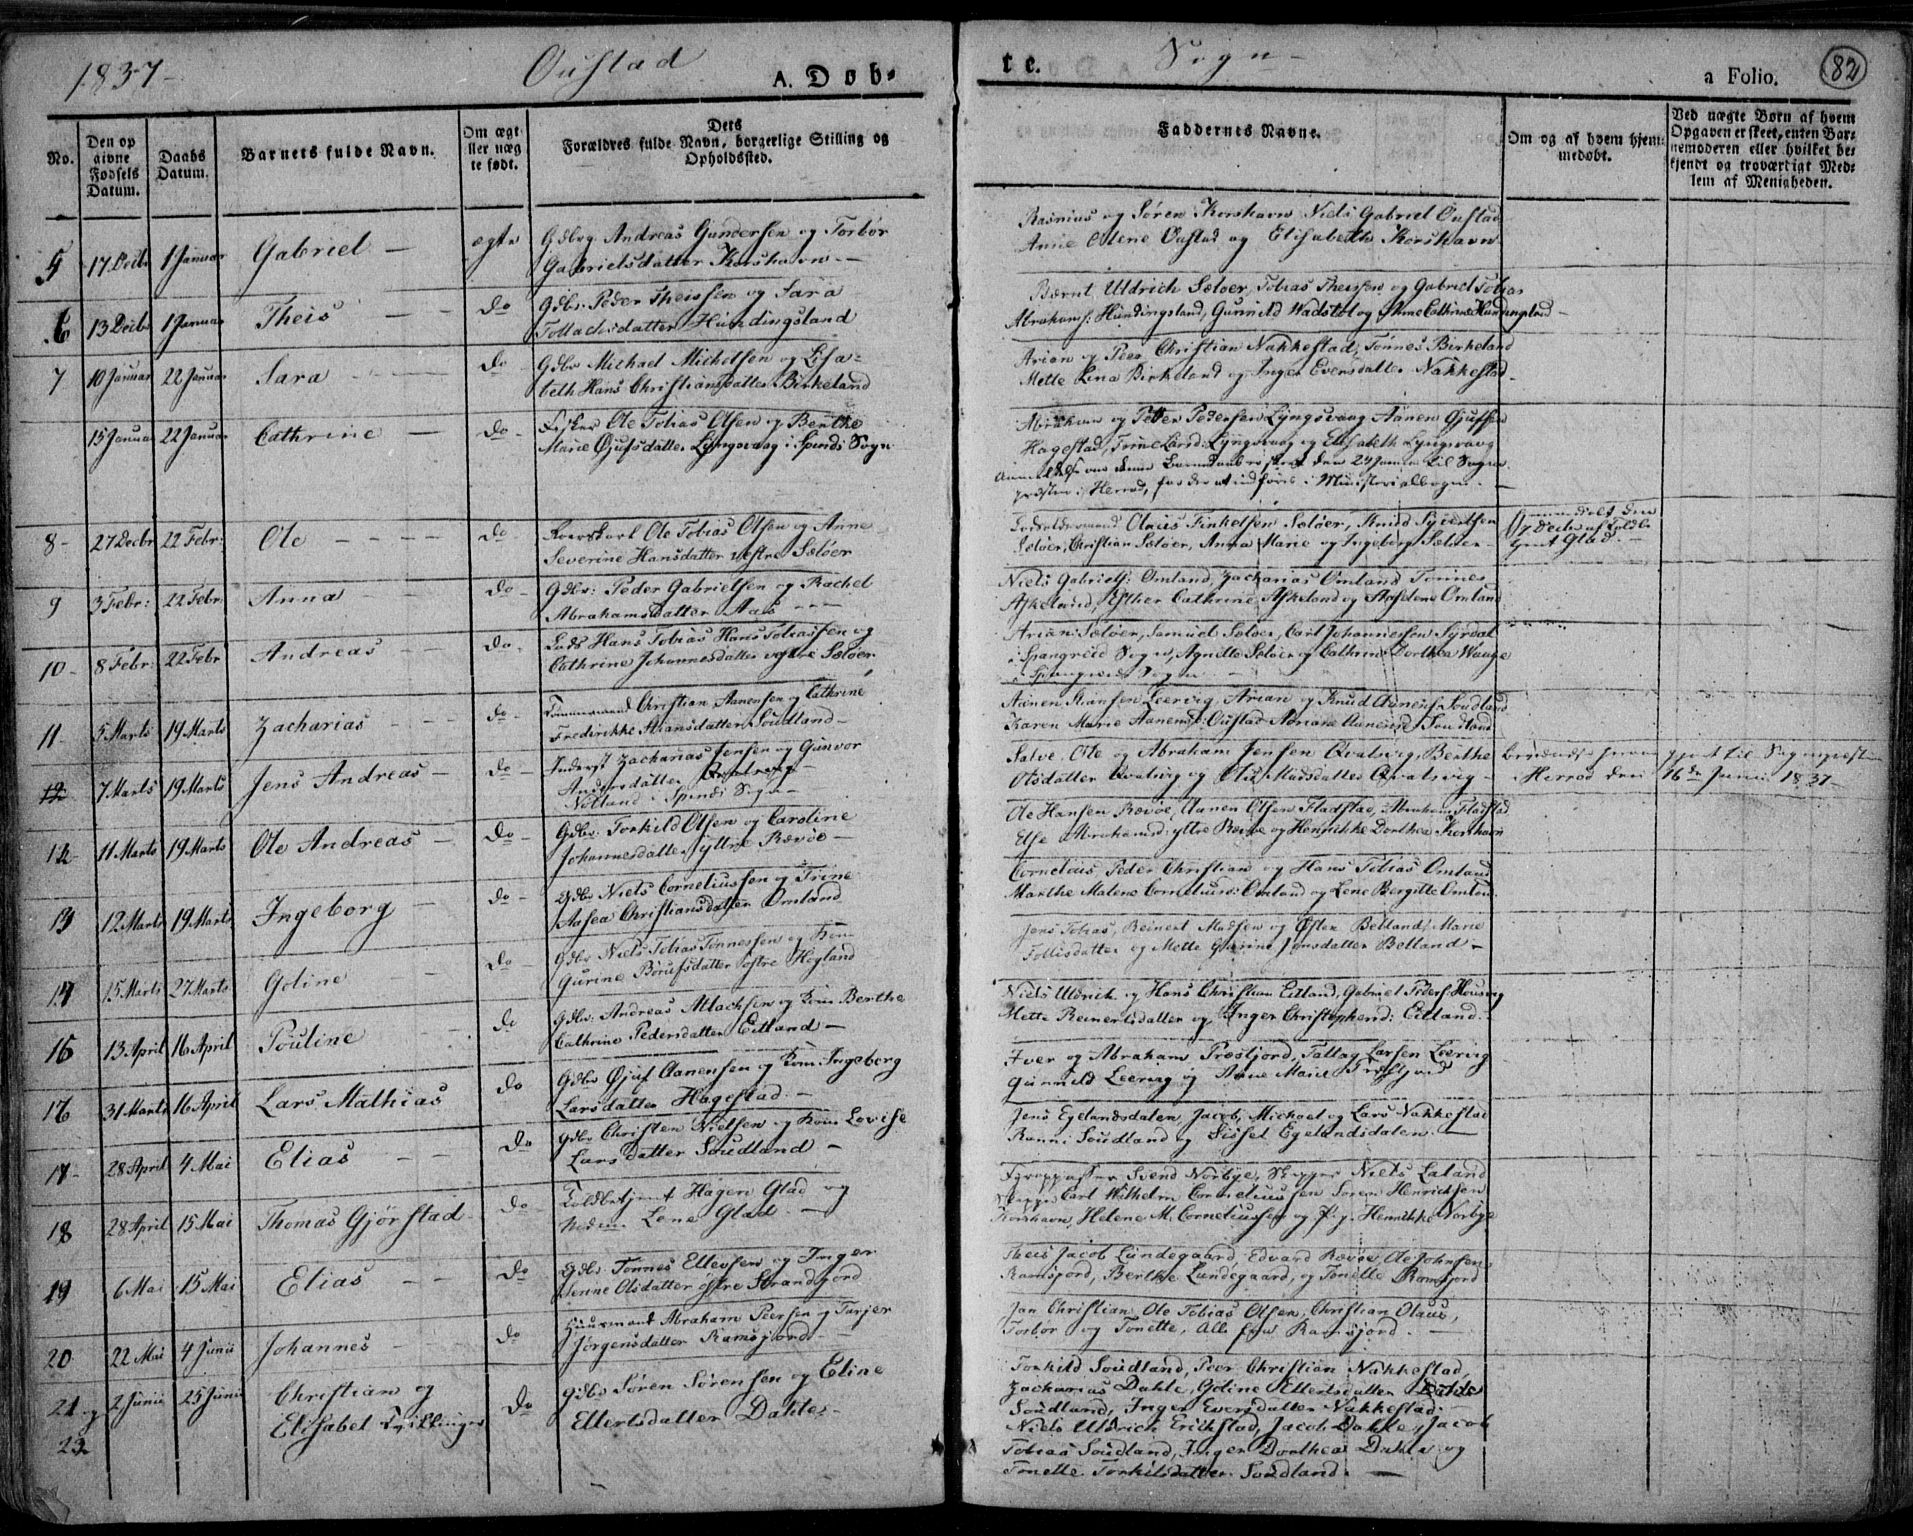 1837
Oustad
A. Døb-
te.
Sogn
a Folio.
82
No.
Den op
givne
Fødsels
Datum.
Daabs
Datum.
Barnets fulde Navn.
Om ægt
ller næg
te født.
Dets
Forældres fulde Navn, borgerlige Stilling og
Opholdssted.
Faddernes Navne.
Om og af hvem hjem-
medøbt.
Ved uægte Børn af hvem
Opgaven er skeet, enten Bar-
nemoderen eller hvilket be-
kjendt og troværdigt Med-
lem af Menigheden.
5 17 Decbr 1 Januar Gabriel ægte Gdbrg. Andreas Gundersen og Torbør
Gabrielsdatter Korshavn
Rasmus og Søren Korshavn Niels Gabriel Oustad
Anne Olene Oustad og Elisabeth Korshavn
6 13 Decbr 1 Januar Theis do Gdbr. Peder Theissen og Sara
Tollachsdatter Hundingsland
Bærnt Uldrich Sæløer, Tobias Theissen og Gabriel Tobias
Abrahams: Hundingsland, Gunnild Wadstøl og Anne Cathrine Hundingsland
7 10 Januar 22 Januar Sara do Gdbr Michael Michelsen og Elisa-
beth Hans Christiansdatter Birkeland
Arian og Peer Christian Nakkestad, Tønnes Birkeland
Mette Lena Birkeland og Inger Eversdatter Nakkestad
15 Januar 22 Januar Cathrine do Fisker Ole Tobias Olsen og Berthe
Marie Gjufsdatter Lyngsvaag i Spinds Sogn
Abraham og Petter Pedersen Lyngsvaag Aanen Gjufsen
Hagestad, Trine Larsd: Lyngsvaag og Elisabeth Lyngsvaag
denne Barnedaab er skeet den 24 Januar til Sogne
præsten i Herred, for der at indføres i Ministerialbogen
8 27 Decbr 22 Febr: Ole do Ole Tobias Olsen og Anne
Severine Hansdatter vestre Sæløer
Lodsoldermand Olaus Finkelsen Sæløer, Knud Syvertsen
Sæløer, Christian Sæløer, Anna Marie og Ingeborg Sæløer
den
7 Decbr af Toldbe
tjent Glad.
9 3 Febr: 22 Febr: Anna do Gdbr: Peder Gabrielsen og Rachel
Abrahamsdatter Aas
Niels Gabriels: Omland, Zacharias Omland Tønnes
Askeland, Esther Cathrine Askeland og Omland
10 8 Febr: 22 Febr Andreas do Lods Hans Tobias Hans Tobiassen og
Cathrine Johannesdatter vestre Sæløer
Arian Sæløer, Samuel Sæløer, Carl Johannessen Syrdal
i Spangreid Sogn, Agnette Sæløer og Cathrine Dorthea Waage
i Spangreid Sogn
11 5 Marts 19 Marts Zacharias do Christian Aanensen og Cathrine
Fredrikke Stiansdatter Soudland
Aanen Stiansen Leervig, Arian og Knud Aanens: Soudland
Karen Marie Aanensd: Oustad Adriane Aanensd: Soudland
12 7 Marts 19 Marts Jens Andreas do Inderst Zacharias Jensen og Gunvor
Andersdatter Qvalsvig
i Spinds Sogn
Salve, Ole og Abraham Jensen Qvalsvig, Berthe
Olsdatter Qvalsvig og Madsdatter Qvalsvig
til Sognepræsten
Herred den 16de Junii 1837
12 11 Marts 19 Marts Ole Andreas do Gdbr. Torkild Olsen og Caroline
Johannesdatter yttre Rævøe
Ole Hansen Revøe, Aanen Olsen Fladstad, Abraham Fladstad
Else Abrahamsd: yttre Revøe og Henrikke Dorthea Korshavn
13 12 Marts 19 Marts Ingeborg do Gdbr Niels Corneliussen og Trine
Aasea Christiansdatter Omland
Cornelius, Peder Christian og Hans Tobias Omland
Marthe Malene Cornelius: Omland og Lene Bergitte Omland
14 15 Marts 27 Marts Goline do Gdbr Niels Tobias Tønnessen og Kone
Gurine Børufsdatter østre Høyland
Jens Tobias, Reinert Madsen og Østen Betland, Marie
Tollisdatter og Mette Gurine Jonsdatter Betland
15 13 April 16 April Pouline do Gdbr. Andreas Atlachsen og Kone Berthe
Cathrine Pedersdatter Eitland
Niels Uldrich og Hans Christian Eitland, Gabriel Peders: Housvig
Mette Reinertsdatter og Inger Christophersd: Eitland.
16 31 Marts 16 April Lars Mathias do Gdbr Gjuf Aanensen og Kone Ingeborg
Larsdatter Hagestad
Iver og Abraham Præstjord, Tallag Larsen Leervig
Gunnild Leervig og Anne Marie Præstjord
17 28 April 4 Mai Elias do Gdbr Christen Nielsen og Kone Lovise
Larsdatter Soudland
Jens Egelandsdalen, Jacob, Michael og Lars Nakkestad
Ranni Soudland og Sissel Egelandsdalen
18 28 April 15 Mai Thomas Gjørstad do Toldbetjent Hagen Glad og
Lene Glad.
Fyrrppasser Svend Norbye, Skipper Niels Laland
Skipper Carl Wilhelm Corneliussen Søren Henriksen
Korshavn, Helene M. Corneliussen og P.g. Henrikke Norbye
19 6 Mai 15 Mai Elias do Gdbr. Tønnes Ellevsen og Inger
Senne Olsdatter østre Strandfjord
Theis Jacob Lundegaard, Edvard Revøe, Ole Johnsen
Ramsfjord, Berthe Lundegaard, og Tonette Ramsfjord
20 22 Mai 4 Junii Johannes do Huusmand Abraham Peersen og Tarjer
Jørgensdatter Ramsfjord
Jan Christian, Ole Tobias Olsen, Christian Olaus,
Torbør og Tonette, Alle fra Ramsfjord.
21 og
22 2 Junii 25 Junii Christian og
Elisabet Tvillinger do Gdbr Søren Sørensen og Eline
Ellertsdatter Dahle
Torkild Soudland, Peer Christian Nakkestad,
Zacharias Dahle, Goline Ellertsdatter Dahle
Soudland, Inger Eversdatter Nakkestad.
Niels Uldrich Erikstad, Jacob Dahle, Jacob
Tobias Soudland, Inger Dorthea Dahle og
Tonette Torkilsdatter Soudland.